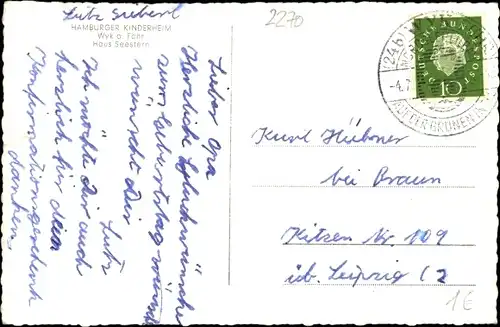 Lutz Siebert
HAMBURGER KINDERHEIM
Wyk a. Föhr
Haus Seestern
2270
Lieber Opa
Herzliche Glückwünsche
zum Geburtstag
wünscht Dir
Lutz
Ich möchte Dir auch
herzlich für dein
Konfirmationsgeschenk
danken.
DEUTSCHE BUNDESPOST
10
(24b) WYK
-4.7.
AUF DER GRÜNEN
Kurt Hübner
bei Braun
Kitzen Nr 109
üb. Leipzig C 2
1€